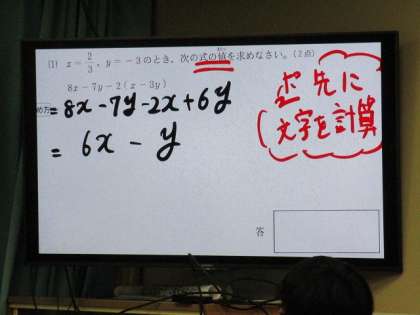 (1) x = 2/3 , y = -3 のとき, 次の式の値を求めなさい。(2点)
8x - 7y - 2 ( x - 3y )
= 8x - 7y - 2x + 6y
= 6x - y
先に
文字を計算
答